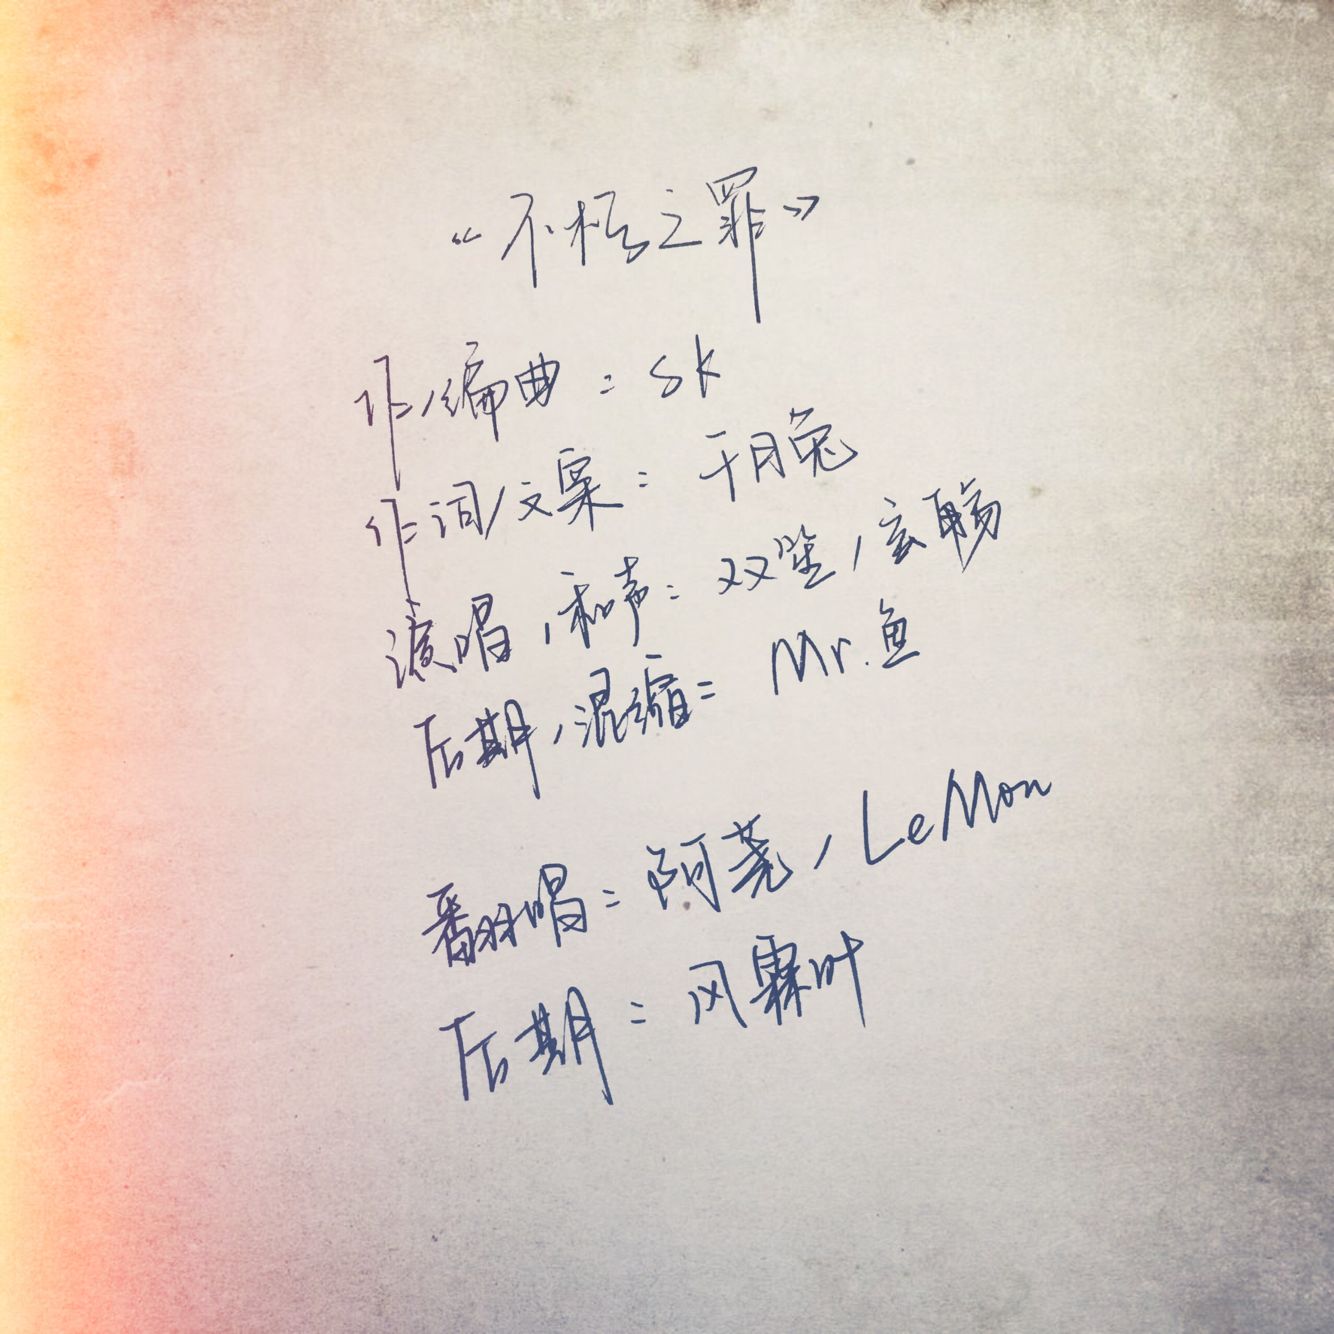 《不朽之罪》
作/编曲：sk
作词/文案：千月兔
演唱/和声：双笙/玄觞
后期/混缩：Mr.鱼
翻唱：阿荛/LeMon
后期：风霖叶